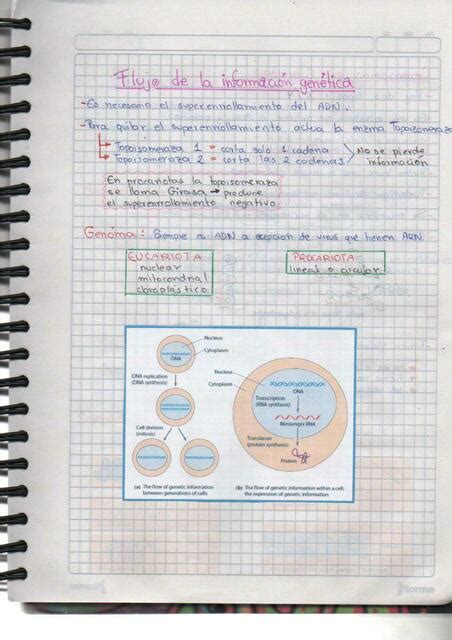 Flujo de la información genética
- Es necesario el superenrollamiento del ADN.
- Para quitar el superenrollamiento actua la enzima Topoizomeraza
Topoisomeraza 1 = corta solo 1 cadena
Topoisomeraza 2 = corta las 2 cadenas
No se pierde
información
En procariotas la topoisomeraza
se llama Girasa → produce
el superenrollamiento negativo
Genóma: Siempre es ADN a excepción de virus que tienen ARN.
EUCARIOTA
nuclear
mitocondrial
cloroplástico
PROCARIOTA
lineal o circular
Nucleus
Cytoplasm
DNA
DNA replication
(DNA synthesis)
Cell division
(mitosis)
(a) The flow of genetic information
between generations of cells
Nucleus
Cytoplasm
DNA
Transcription
(RNA synthesis)
Messenger RNA
Translation
(protein synthesis)
Protein
(b) The flow of genetic information within a cell:
the expression of genetic information
Norma